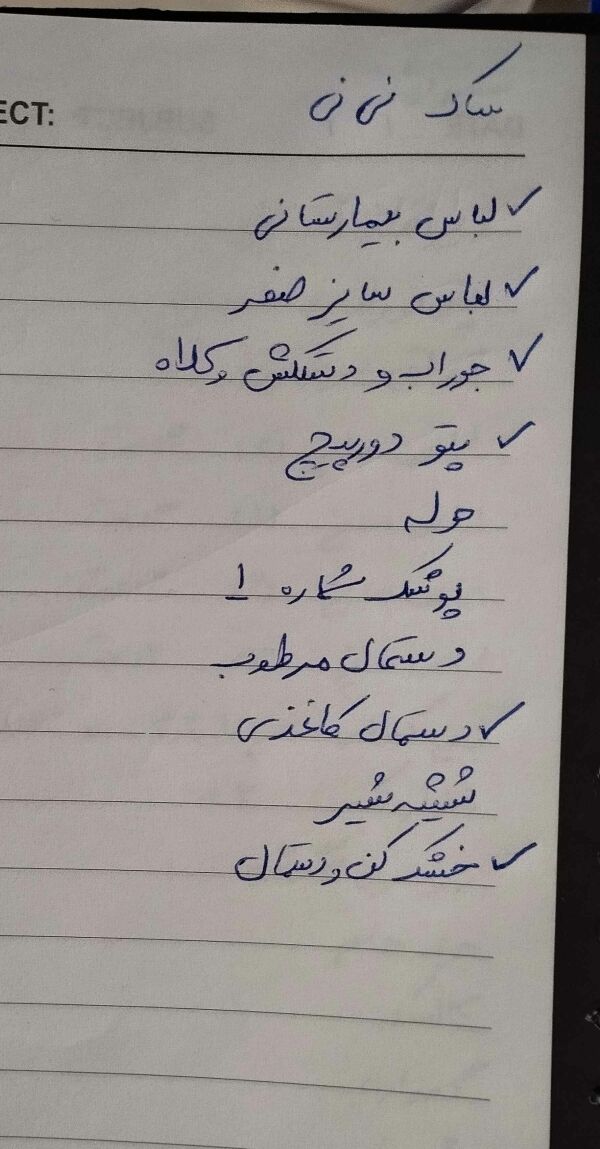 ECT:
ساک نی نی
✓ لباس بیمارستانی
✓ لباس سایز صفر
✓ جوراب و دستکش و کلاه
✓ پتو دورپیچ
حوله
پوشک شماره ۱
دستمال مرطوب
✓ دستمال کاغذی
شیشه شیر
✓ خشک کن و دستمال